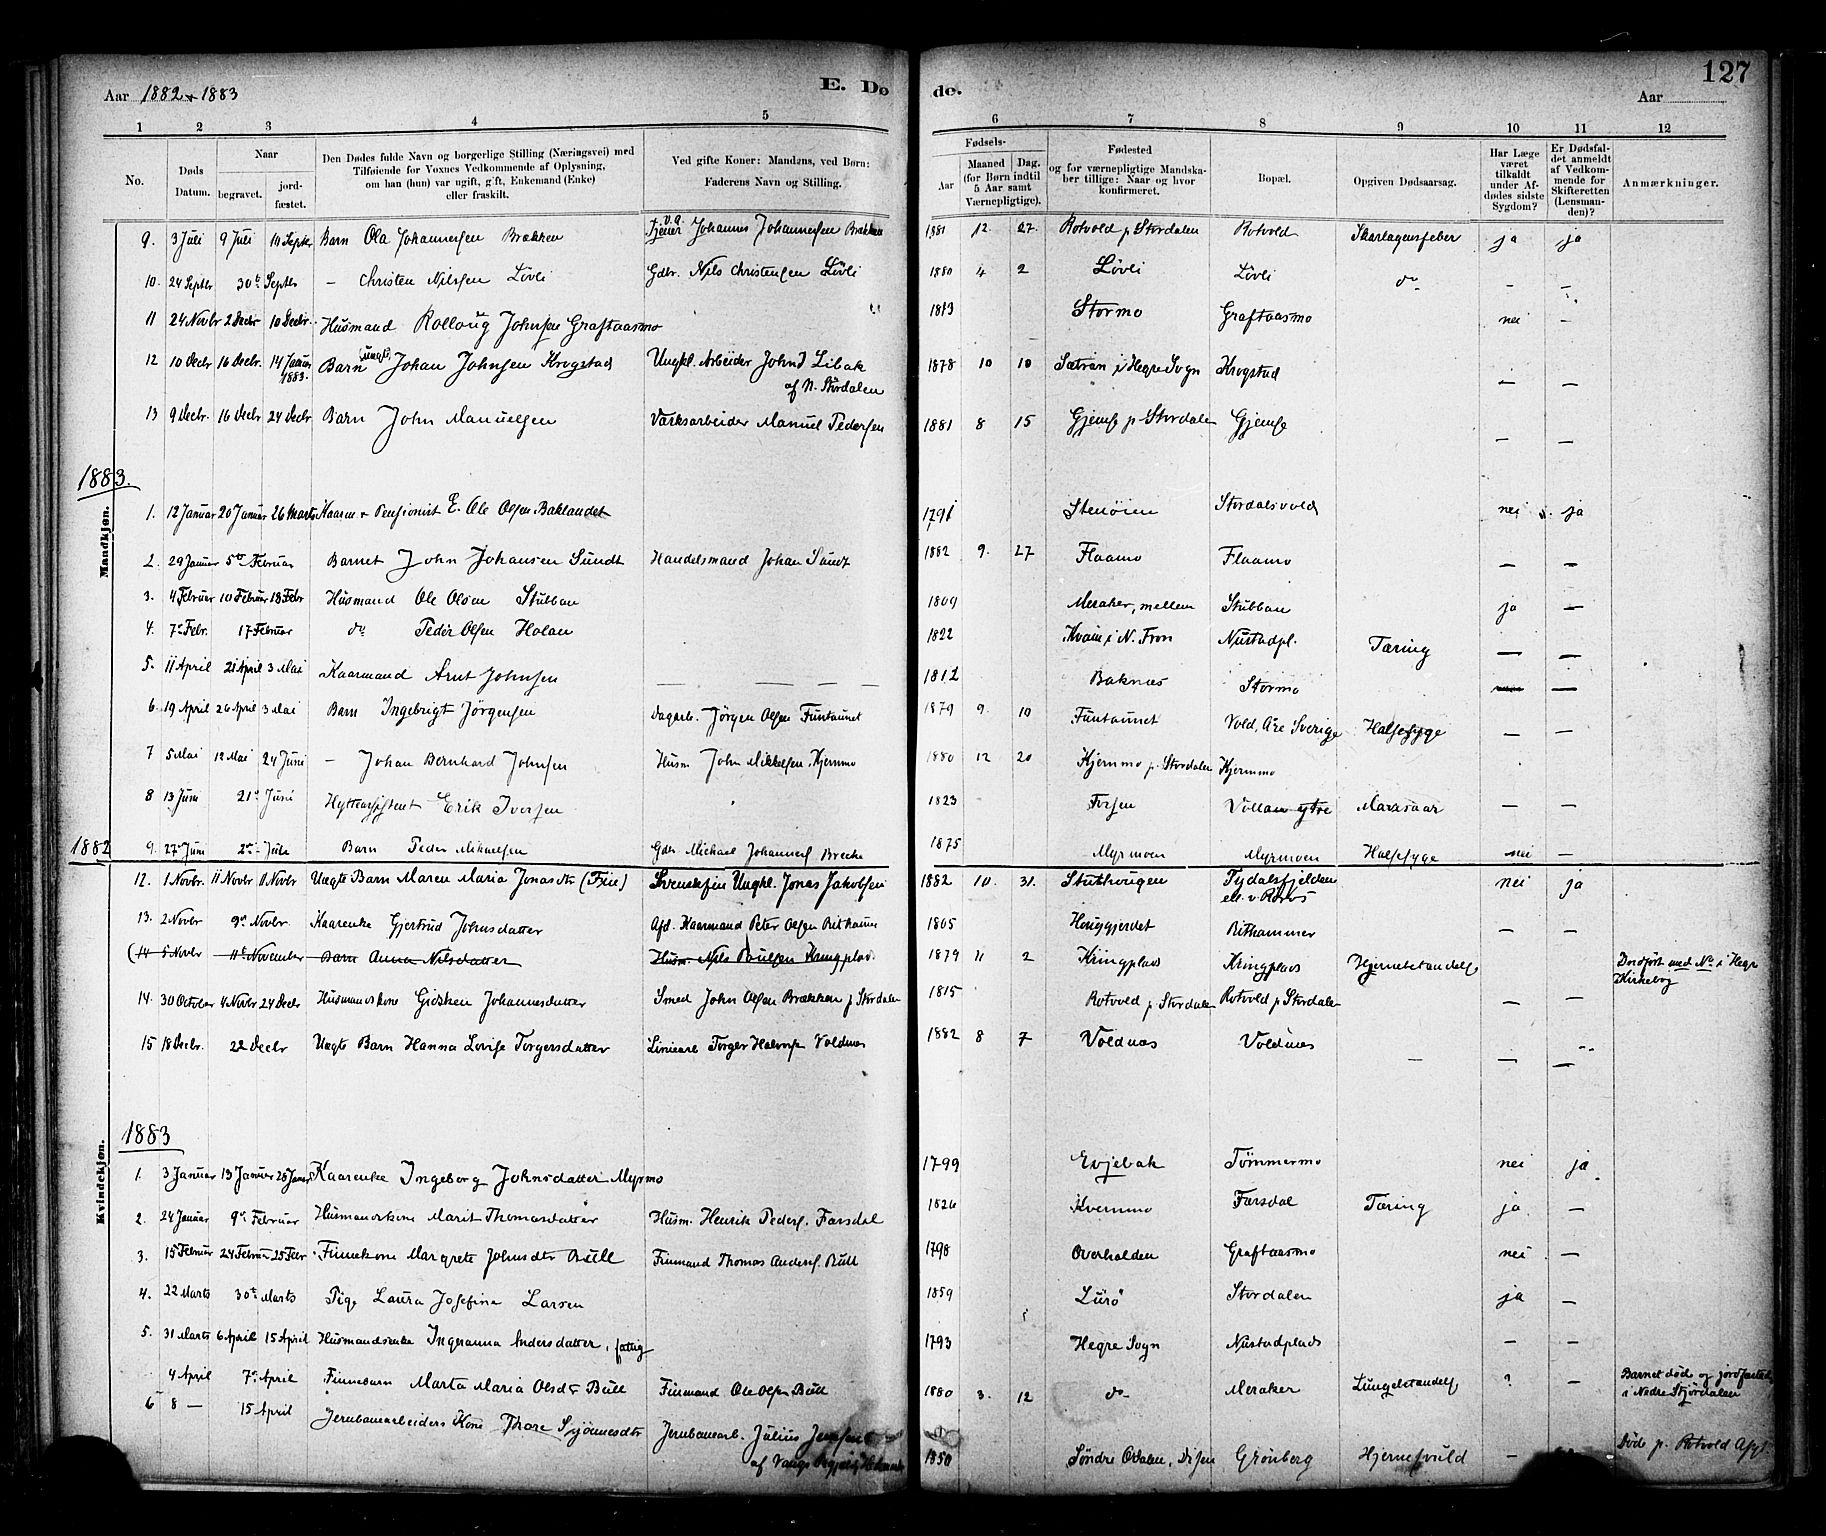 Aar 1882 & 1883 E. Dø de. 127
Aar
1 2 3 4 5 6 7 8 9 10 11 12
No. Døds Datum. Naar begravet. jordfæstet. Den Dødes fulde Navn og borgerlige Stilling (Næringsvei) med Tilføiende for Voxnes Vedkommende af Oplysning, om han (hun) var ugift, gift, Enkemand (Enke) eller fraskilt. Ved gifte Koner: Mandens, ved Børn: Faderens Navn og Stilling. Fødsels- Aar Maaned Dag. (for Børn indtil 5 Aar samt Værnepligtige). Fødested og for værnepligtige Mandskaber tillige: Naar og hvor konfirmeret. Bopæl. Opgiven Dødsaarsag. Har Læge været tilkaldt under Afdødes sidste Sygdom? Er Dødsfaldet anmeldt af Vedkommende for Skifteretten (Lensmanden)? Anmærkninger.
9. 3 Juli 9 Juli 10 Septbr Barn Ola Johannesen Brækken Tjener Johannes Johannesen Brækken 1881 12. 27. Rotvold p Stordalen Rotvold Skarlagensfeber ja ja
10. 24 Septbr 30te Septbr – Christen Nilssen Løvli Gdbr. Nils Christensen Løvli 1880 4 2 Løvli Løvli do – –
11 24 Novbr 2 Decbr 10 Decbr. Husmand Rolloug Johnsen Graftaasmo 1813 Stormo Graftaasmo nei –
12 10 Decbr 16 Decbr. 14 Januar 1883. Barn (uægt) Johan Johnsen Krogstad Ungkl. Arbeider John J Libak af N. Stordalen 1878 10 10 Sætran i Hegre Sogn Krogstad – –
13 9 Decbr. 16 Decbr 24 Decbr Barn John Manuelsen Værksarbeider Manuel Pedersen 1881 8 15 Gjemse p. Stordalen Gjemse – –
1883.
Mandkjøn.
1. 12 Januar 20 Januar 26 Marts Kaarm & Pensionist E. Ole Olsen Baklandet 1791 Stenøien Stordalsvold nei ja
2. 29 Januar 5te Februar Barnet John Johansen Sundt Handelsmand Johan Sundt 1882 9. 27 Flaamo Flaamo – –
3. 4 Februar 10 Februar 18 Febr Husmand Ole Olsen Stubban 1809 Meraker, mellem Stubban ja –
4. 7de Febr. 17 Februar do Peder Olsen Holan 1822 Kvam i N. Fron Nustadpl. Tæring – –
5. 11 April 21 April 3 Mai Kaarmand Arnt Johnsen – – – – 1812 Baknæs Stormo – –
6. 19 April 26 April 3 Mai Barn Ingebrigt Jørgensen Dagarb. Jørgen Olsen Funtaunet 1879 9. 10 Funtaunet Vold, Are Sverige Halsesyge – –
7 5 Mai 12 Mai 24 Juni – Johan Bernhard Johnsen Husm John Mikkelsen Kjernmo 1880 12 20 Kjernmo p. Stordalen Kjernmo – –
8 13 Juni 21de Juni Hytteassistent Erik Iversen 1823 Forsen Vollan ytre Marasaar – –
9. 27 Juni 2den Julii Barn Peder Mikaelsen Gdbr Michael Johannes Brecke 1875 Myrmoen Myrmoen Halsesyge nei –
1882
12. 1 Novbr. 11 Novbr Novbr Uægte Barn Maren Maria Jonasdtr (Fin) Svenskfin Ungkl. Jonas Jakobsen 1882 10. 31. Stuthougen Tydalsfjeldene ell. v. Røros nei ja
13. 2 Novbr 9de Novbr. Kaarenke Gjertrud Johnsdatter Afd. Kaarmand Peter Olsen Rithamm 1805 Houggjerdet Rithammer – –
(14 5 Novbr – 11te November – Barn Anna Nilsdatter Husm. Nils Paulsen Kringplads 1879 11 2 Kringplads Kringplads Hjernebetændelse Dødført med No i Hegre Kirkebog
14. 30 October 4 Novbr 24 Decbr Husmandskone Gidsken Johannsdatter Smed John Olsen Brækken p Stordalen 1815 Rotvold p Stordalen Rotvold p Stordalen – –
15 18 Decbr. 22 Decbr Uægte Barn Hanna Lovise Torgersdatter Liniearb Torger Halvors Voldnæs 1882 8 7 Voldnæs Voldnæs – – –
1883
Kvindekjøn.
1. 3 Januar 13 Januar 28 Januar Kaarenke Ingeborg Johnsdatter Myrmo 1799 Evjebak Tømmermo nei ja
2. 24 Januar 9de Februar Husmandskone Marit Thomasdatter Husm. Henrik Peders. Farsdal 1826 Kvernmo Farsdal Tæring ja –
3. 15 Februar 24 Februar 25 Febr Finnekone Margrete Johnsdtr Bull Finmand Thomas Anders. Bull 1798 Overhalden Graftaasmo nei –
4. 22 Marts 30te Marts Pige Laura Josefina Larsen 1859 Lurø Stordalen ja –
5. 31 Marts 6 April 15 April Husmandsenke Ingeranna Andersdatter, fattig 1793 Hegre Sogn Nustadplads – –
4 April 7de April Finnebarn Marta Maria Olsdtr Bull Finmand Ole Olsen Bull 1880 3. 12 do Meraker Lungebetændelse ? – Barnet død og jordfæstet i Nedre Stjørdalen
6 8 – 15 April Jernbanearbeiders Kone Thore Syvernesdtr Jernbanearb. Julius Jensen af Vangs Hedmark 1850 Søndre Odalen Grønberg Hjernesvuld – Død p. Rotvold